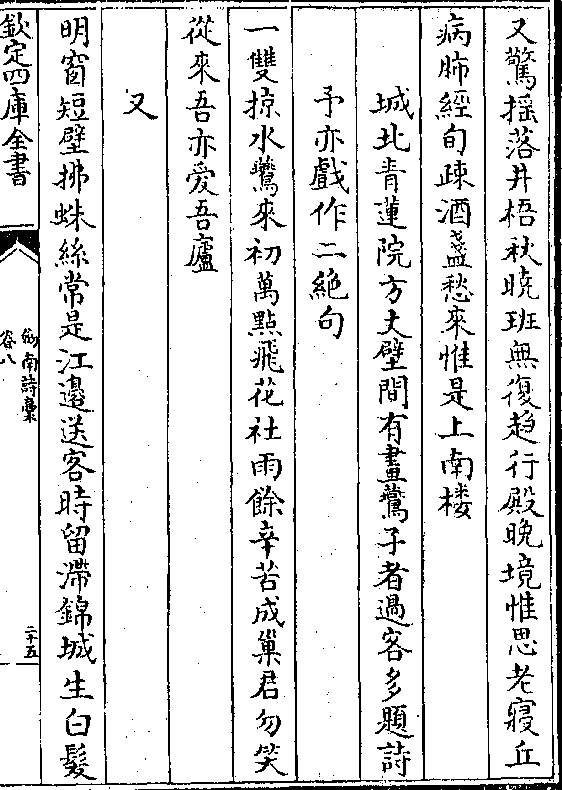 又驚揺落井梧秋曉班無復趍行殿晚境惟思老寢丘
病肺經旬疎酒盞愁來惟是上南楼
城北青蓮院方丈壁間有畫鷰子者過客多題詩
予亦戲作二絶句
一雙掠水鷰來初萬點飛花社雨餘辛苦成巢君勿笑
從來吾亦愛吾廬
又
明窗短壁拂蛛絲常是江邊送客時留滯錦城生白髮
欽定四庫全書
劍南詩稾
卷八
二十五